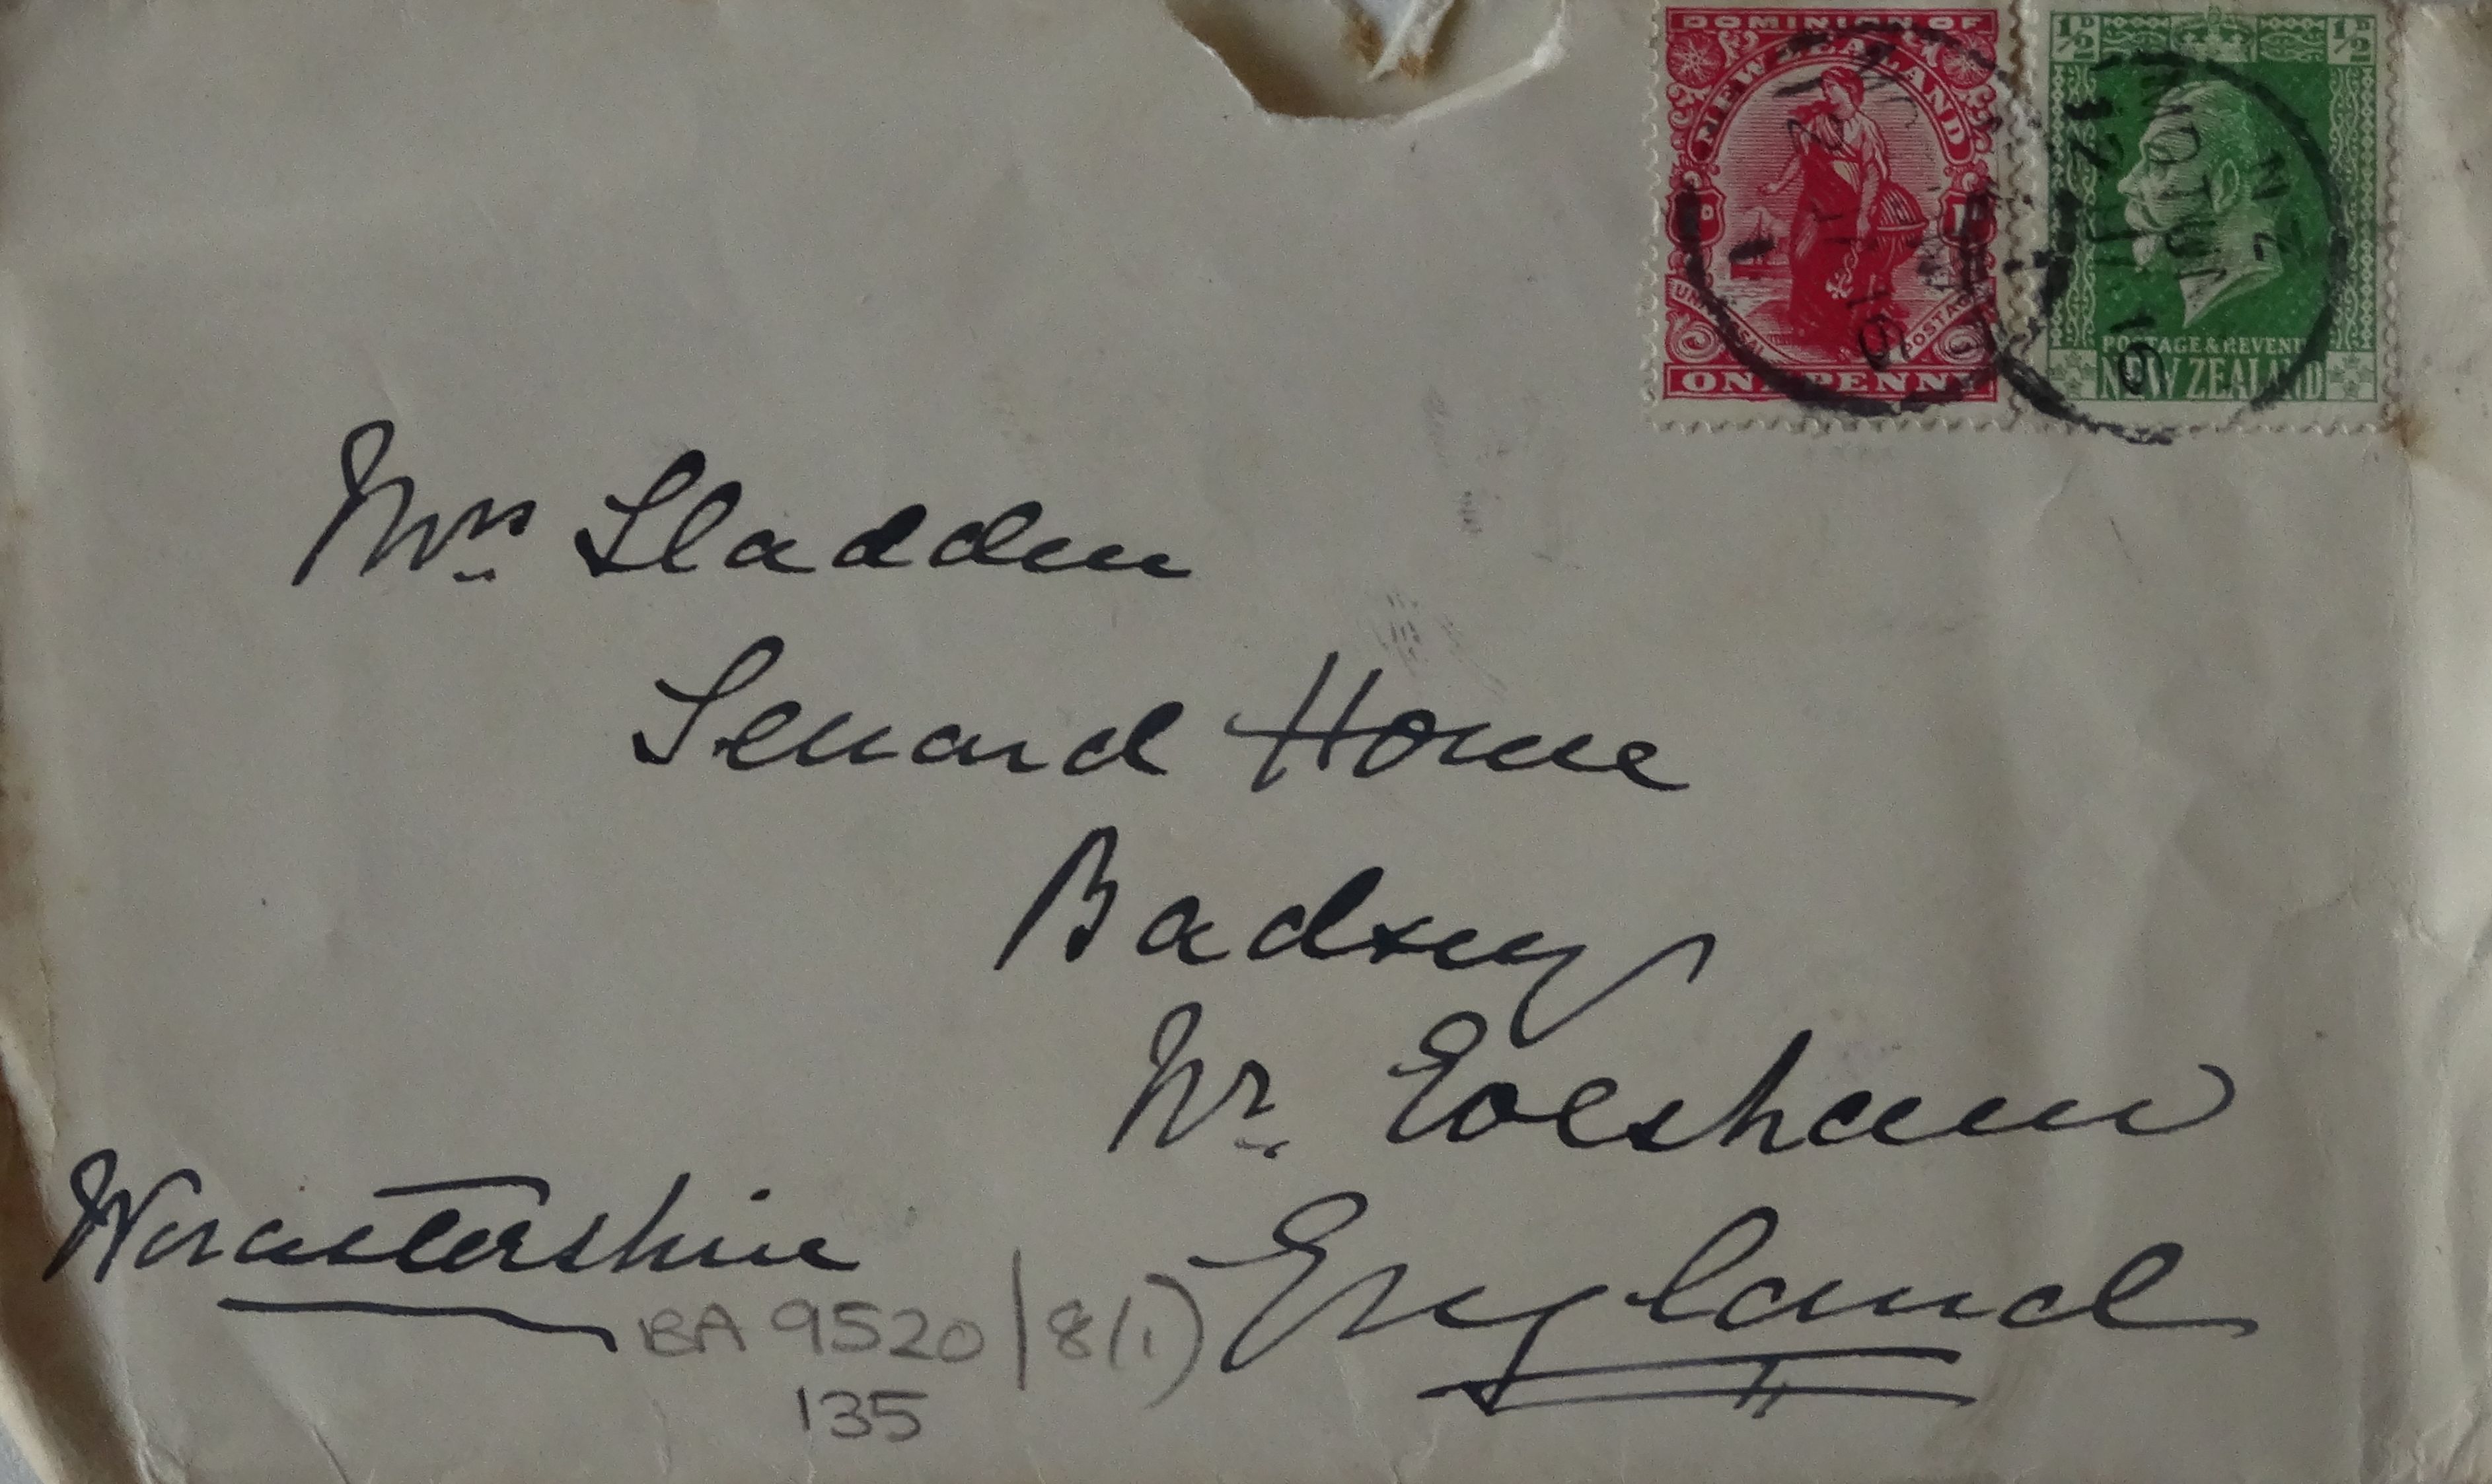 DOMINION OF
NEW ZEALAND
UNIVERSAL POSTAGE
ONE PENNY
½D ½D
POSTAGE & REVENUE
NEW ZEALAND
12
16
N Z
Mrs Sladden
Seward House
Badsey
Nr Evesham
Worcestershire
England
BA 9520/8(1)
135